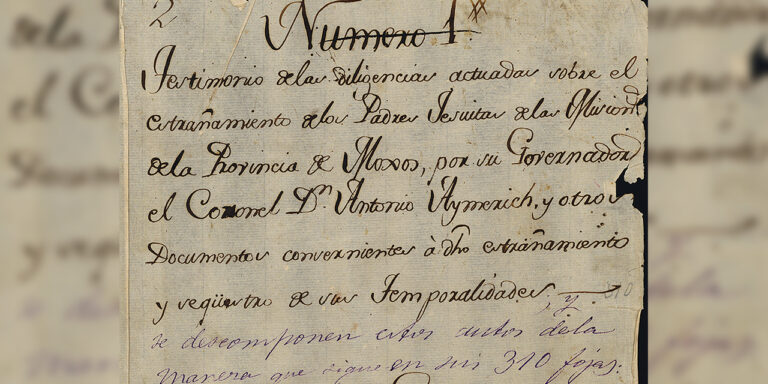 2
Numero 1
Testimonio delas diligencias actuadas sobre el
estrañamiento delos Padres Jesuitas delas Mision
dela Provincia de Moxos, por su Governador
el Coronel Dn Antonio Aymerich, y otros
Documentos convernientes à dho estrañamiento
y seqüestro de sus Temporalidades; y
se descomponen estos autos dela
manera que sigue en sus 310 fojas: